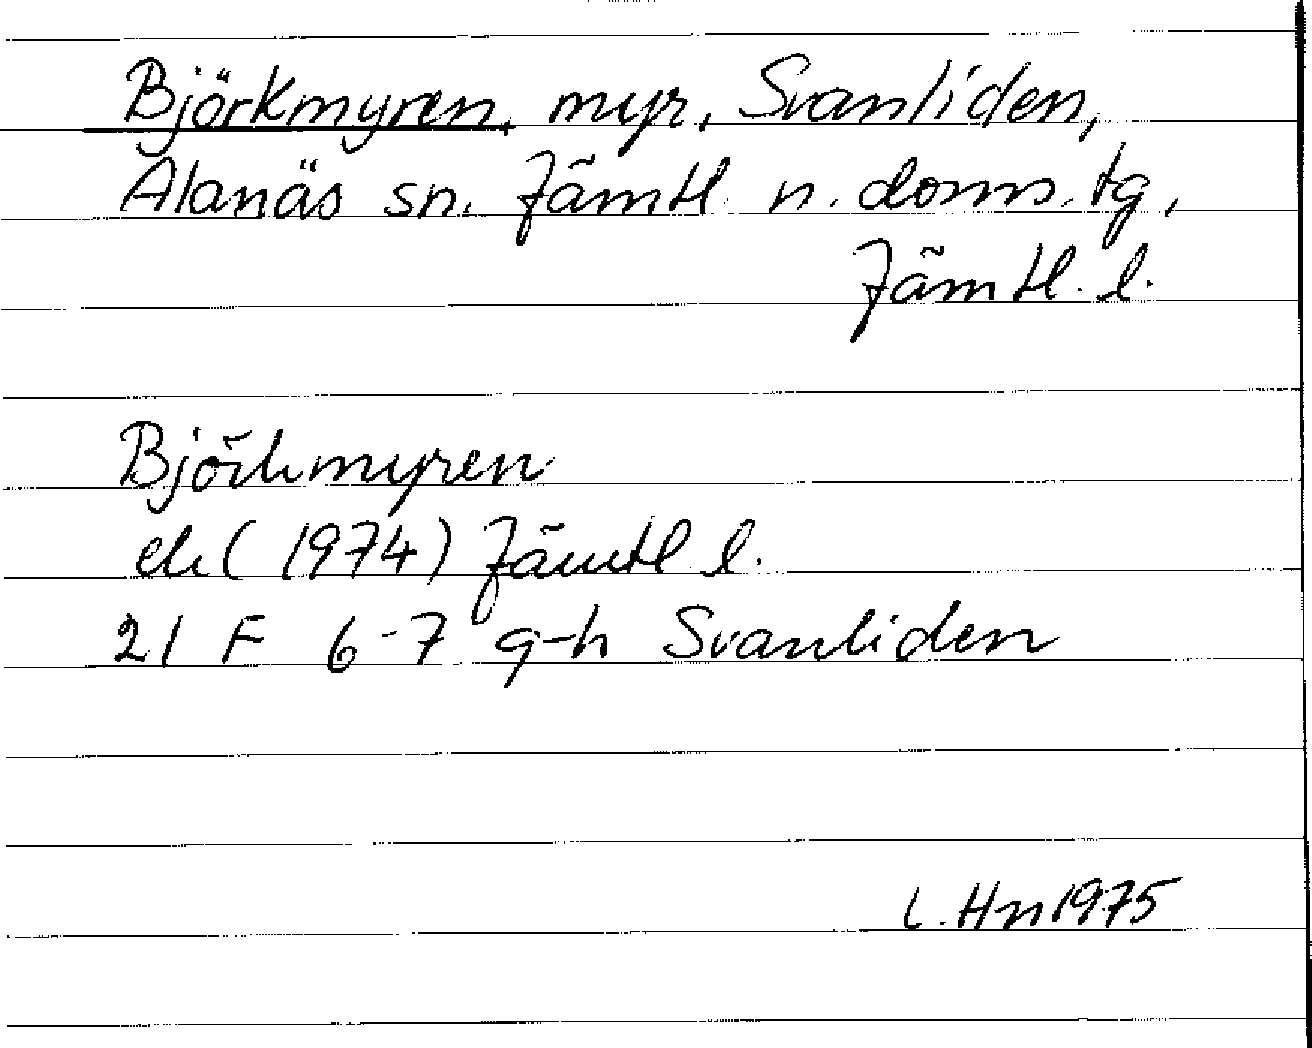 Björkmyren, myr, Svanliden,
Alanäs sn. Jämtl. n. doms. tg,
Jämtl. l.
Björkmyren
ek (1974) Jämtl l.
21 F 6-7 g-h Svanliden
L. Hn 1975